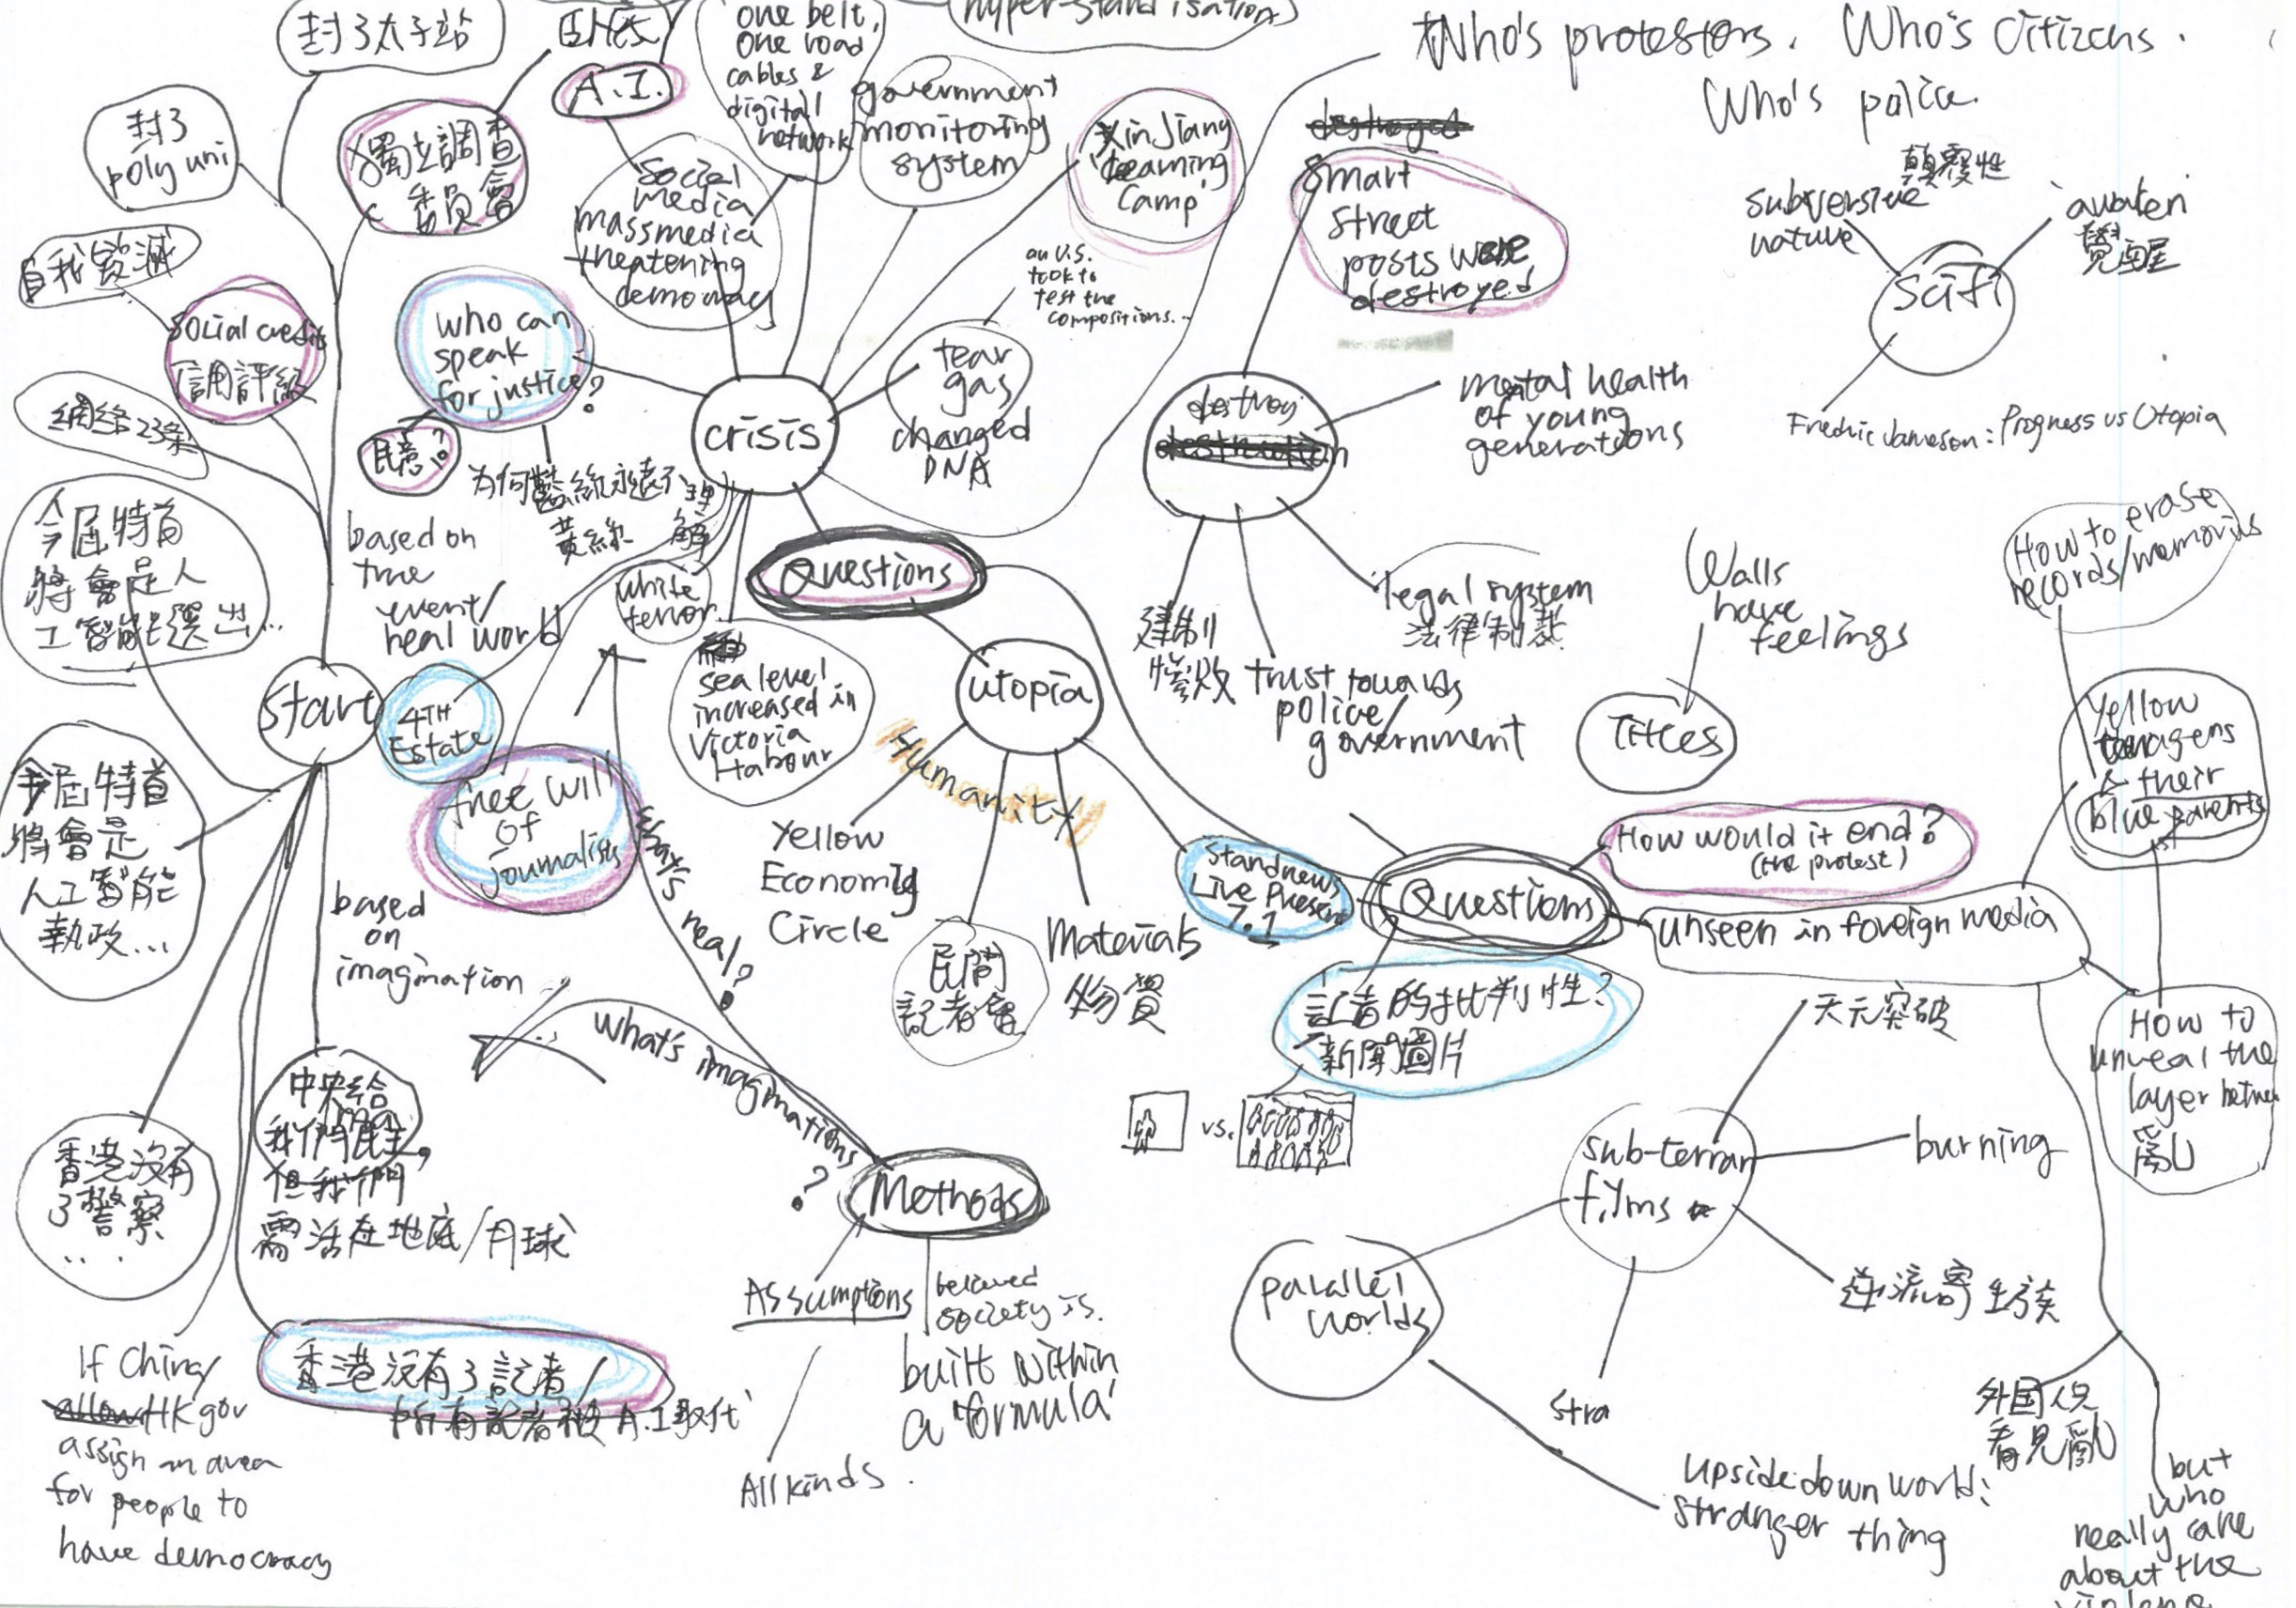 封了太子站
臥底
A.I.
one belt,
one road
cables &
digital
network
hyper-standisation
government
monitoring
system
封了
poly uni
獨立調查
委員會
social
media
massmedia
threatening
democracy
XinJiang
'Learning
Camp'
Who's protestors. Who's Citizens.
Who's police.
自我毀滅
social credit
信用評級
網絡23條
who can
speak
for justice?
民意?
为何藍絲永遠不理解
黃絲
an U.S.
took to
test the
compositions...
tear
gas
changed
DNA
crisis
smart
street
posts were
destroyed
destroy
mental health
of young
generations
建制
摧毀
trust towards
police/
government
legal system
法律制裁
顛覆性
subversive
nature
awaken
覺醒
Scifi
Fredric Jameson: Progress vs Utopia
今屆特首
將會是人
工智能選出...
based on
true
event/
real world
Start
4TH
Estate
white
terror
sea level
increased in
Victoria
Habour
Questions
utopia
Humanity
Yellow
Economic
Circle
民間
記者會
Materials
物資
free will
of
journalists
what's real?
今屆特首
將會是
人工智能
執政...
based
on
imagination
what's imaginations?
Methods
Assumptions
All kinds.
believed
society is
built within
a 'formula'
香港沒有
了警察
....
中央給
我們民主,
但我們
需活在地底/月球
香港沒有了記者/
所有記者被A.I取代
If China/
HK gov
assign an area
for people to
have democracy
Walls
have
feelings
Titles
Standnews
Live Present
7.1
Questions
How would it end?
(the protest)
unseen in foreign media
記者的批判性?
新聞圖片
vs.
How to erase
records/memories
Yellow
teenagers
& their
blue parents
How to
unveal the
layer between
亂
天元突破
sub-terran
films
burning
逆流寄生族
stra
parallel
worlds
upsidedown world:
stranger thing
外国人只
看見亂
but
who
really care
about the
violence